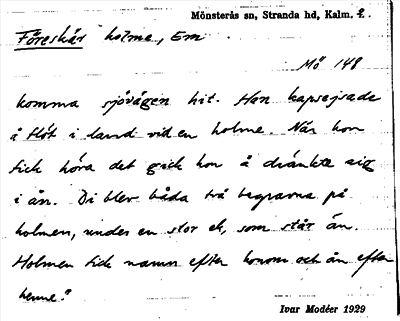 Mönsterås sn, Stranda hd, Kalm. l.
Föreskär holme, Em
Mö 148
komma sjövägen hit. Han kapsejsade
å flöt i land vid en holme. När hon
fick höra det gick hon å dränkte sig
i ån. Di blev båda två begravna på
holmen, under en stor ek, som står än.
Holmen fick namn efter honom och ån efter
henne."
Ivar Modéer 1929